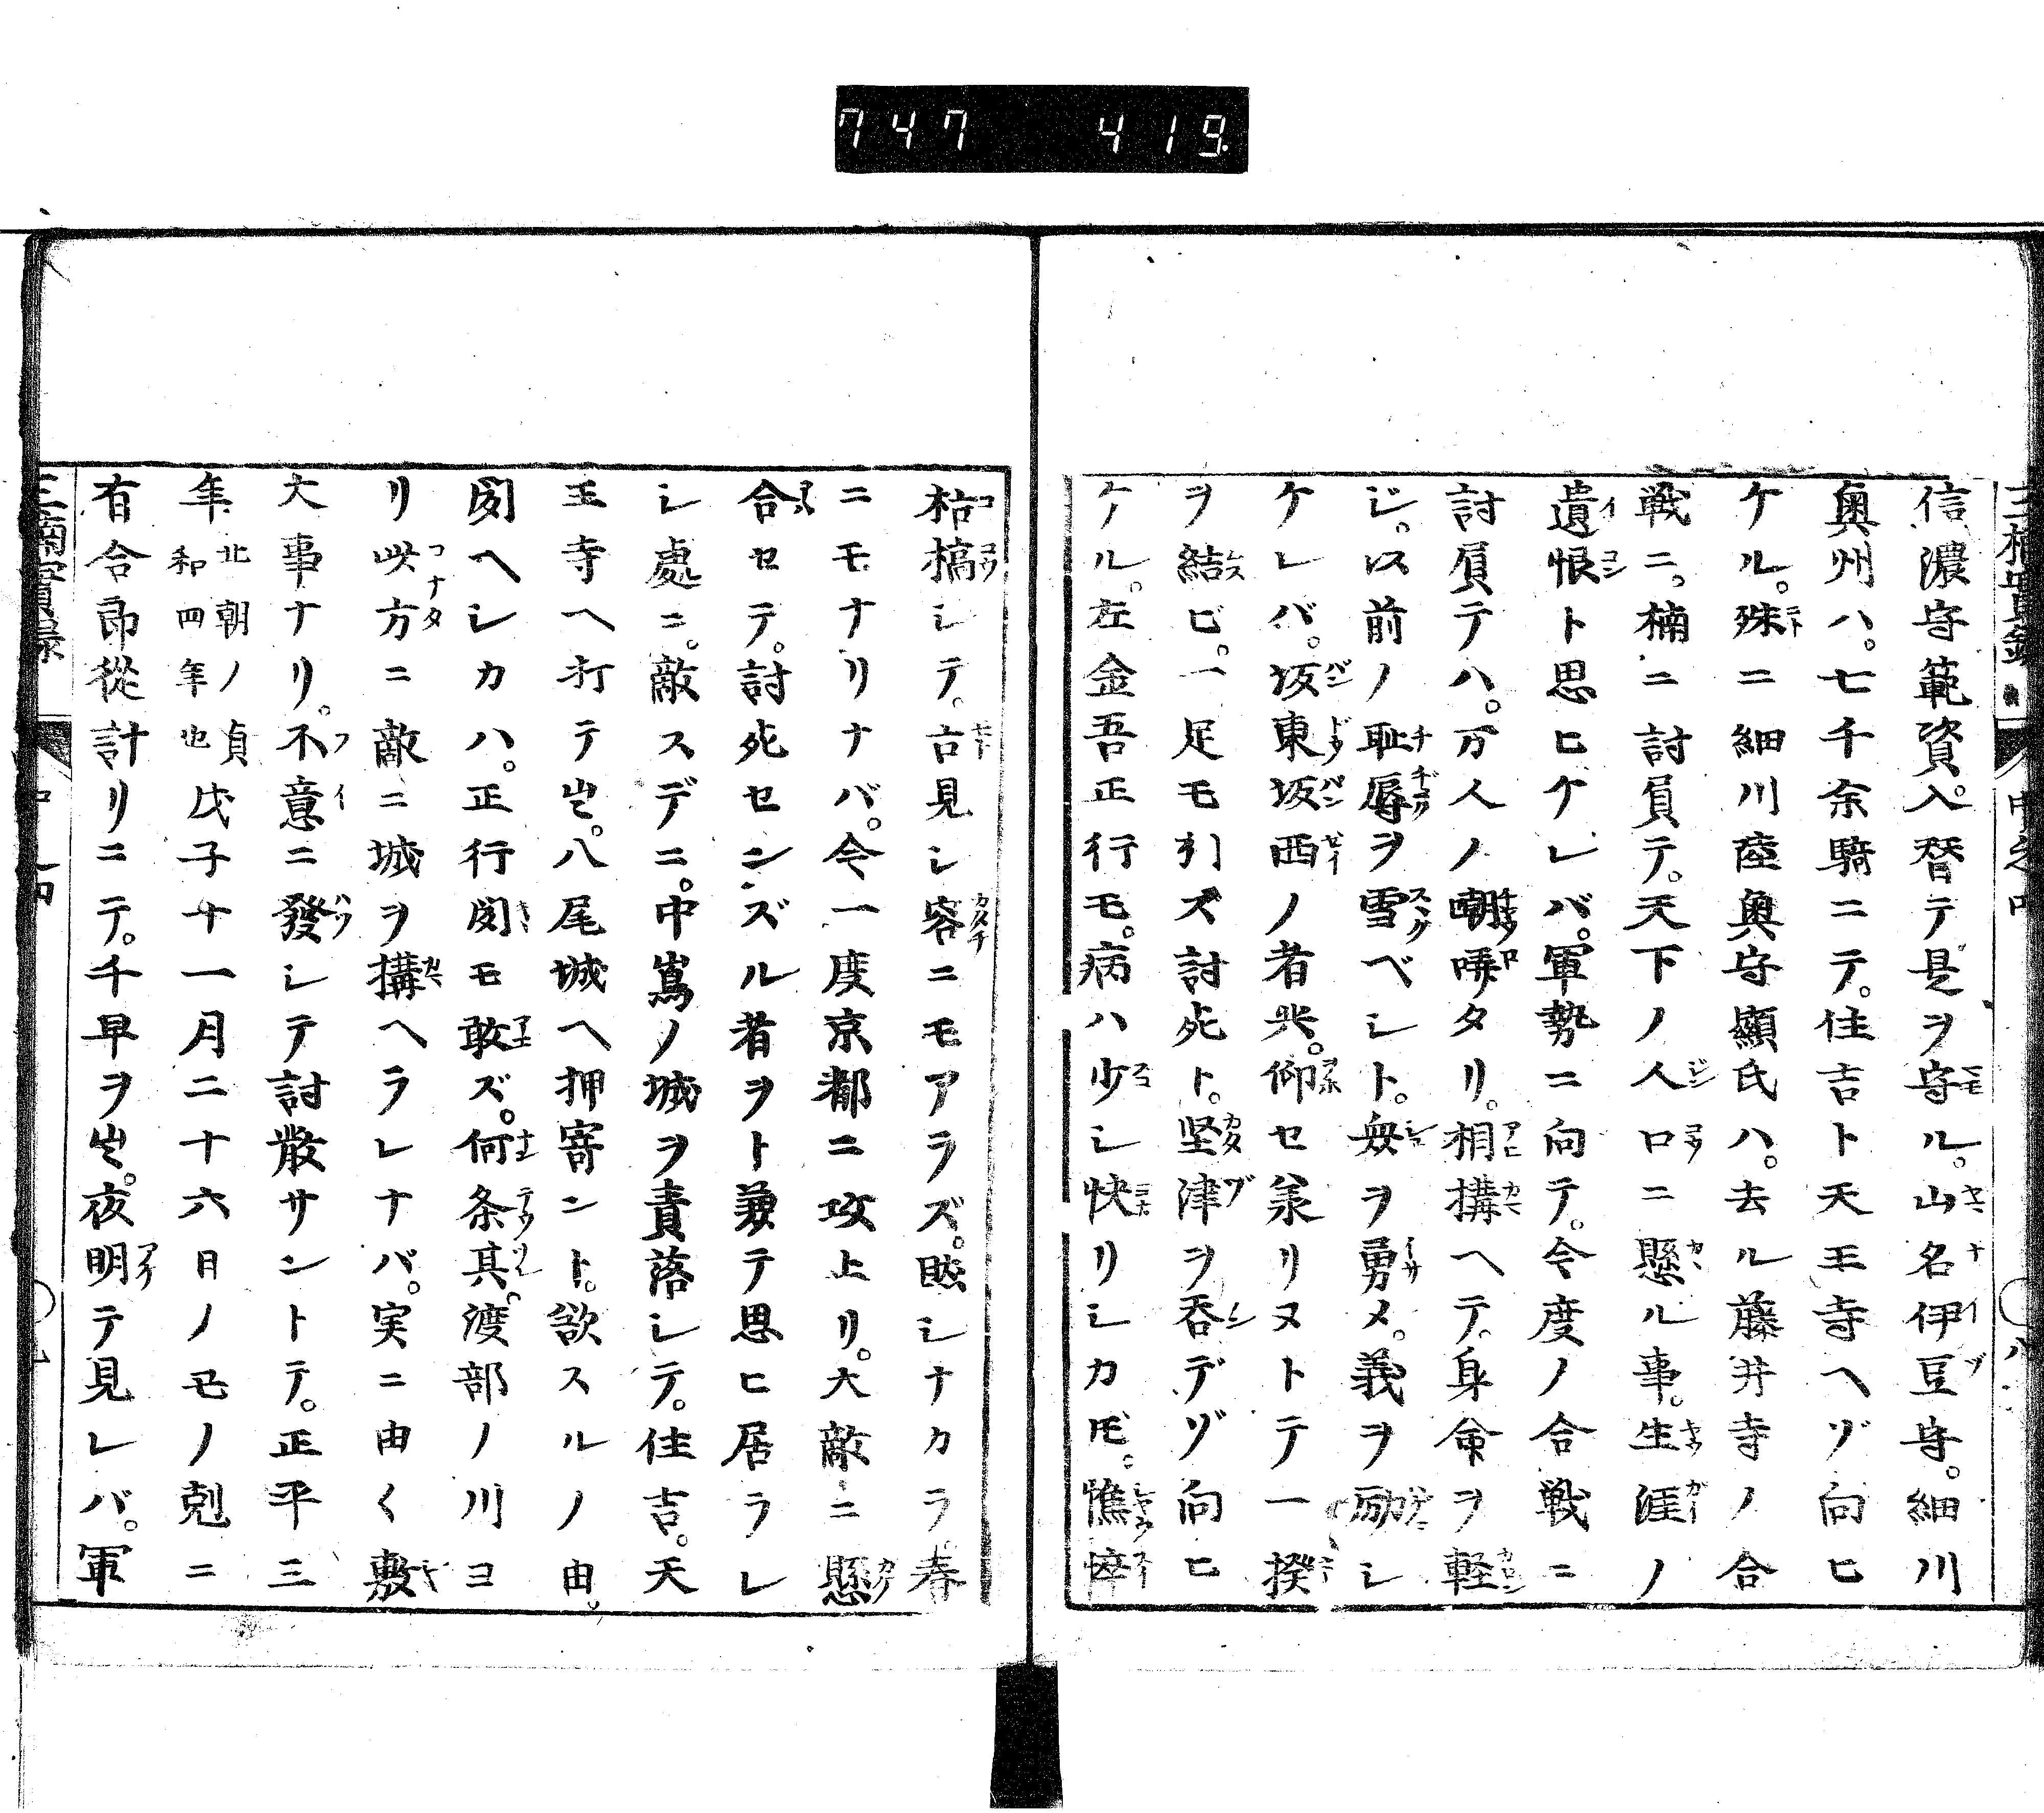 747 419
信濃守範資。入替テ是ヲ守ル。山名伊豆守。細川
奥州ハ。七千余騎ニテ。住吉ト天王寺ヘゾ向ヒ
ケル。殊ニ細川陸奥守顯氏ハ。去ル藤井寺ノ合
戦ニ。楠ニ討負テ。天下ノ人口ニ懸ル事。生涯ノ
遺恨ト思ヒケレバ。軍勢ニ向テ。今度ノ合戦ニ
討負テハ。万人ノ嘲哢タリ。相構ヘテ。身命ヲ軽
ジ。以前ノ恥辱ヲ雪ベシト。毎ヲ勇メ。義ヲ励シ
ケレバ。坂東坂西ノ者共。仰セ承リヌトテ一揆
ヲ結ビ。一足モ引ズ討死ト。堅津ヲ呑デゾ向ヒ
ケル。左金吾正行モ。病ハ少シ快リシカドモ。憔悴
枯槁シテ。古見シ容ニモアラズ。賤シナカラ。春
ニモナリナバ。今一度京都ニ攻上リ。大敵ニ懸
合セテ。討死センズル者ヲト兼テ思ヒ居ラレ
シ處ニ。敵スデニ。中嶌ノ城ヲ責落シテ。住吉。天
王寺ヘ打テ出。八尾城ヘ押寄ント。欲スルノ由。
聞ヘシカハ。正行聞モ敢ズ。何条其。渡部ノ川ヨ
リ此方ニ敵ニ城ヲ構ヘラレナバ。実ニ由々敷
大事ナリ。不意ニ發シテ討散サントテ。正平三
年北朝ノ貞和四年也戊子十一月二十六日ノモノ剋ニ
有合郎從計リニテ。千早ヲ出。夜明テ見レバ。軍